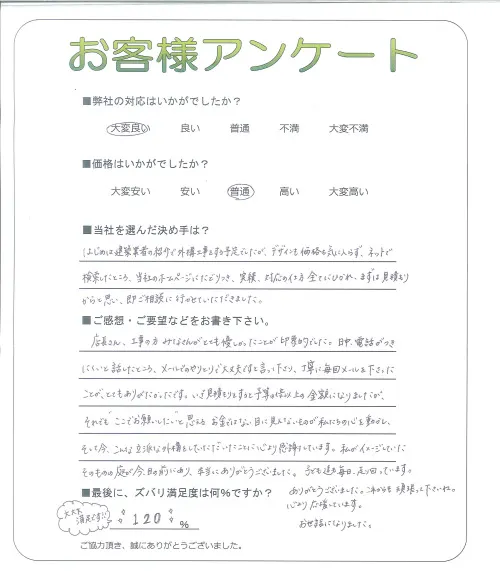 お客様アンケート
■弊社の対応はいかがでしたか？
大変良い 良い 普通 不満 大変不満
■価格はいかがでしたか？
大変安い 安い 普通 高い 大変高い
■当社を選んだ決め手は？
はじめは建築業者の紹介で外構工事をする予定でしたが、デザインも価格も気に入らず、ネットで
検索したところ、当社のホームページにたどりつき、実績、対応の仕方全てにひかれ、まずは見積もり
からと思い、即ご相談に行かせていただきました。
■ご感想・ご要望などをお書き下さい。
店長さん、工事の方みなさんがとても優しかったことが印象的でした。日中、電話がつき
にくいと話したところ、メールでのやりとりで大丈夫だと言って下さり、丁寧に毎回メールを下さった
ことが、とてもありがたかったです。いざ見積もりをすると予算の倍以上の金額になりましたが、
それでも"ここでお願いしたい"と思える お金ではない目に見えないものが私たちの心を動かし、
そして今、こんな立派な外構をしていただいたことに心より感謝しています。私がイメージしていた
そのものの庭が今、目の前にあり、本当にありがとうございました。子ども達も毎日、走り回っています。
■最後に、ズバリ満足度は何％ですか？
ありがとうございました。これからも頑張って下さいね。
心より応援しています。
お世話になりました。
大大大
満足です!!
120 %
ご協力頂き、誠にありがとうございました。